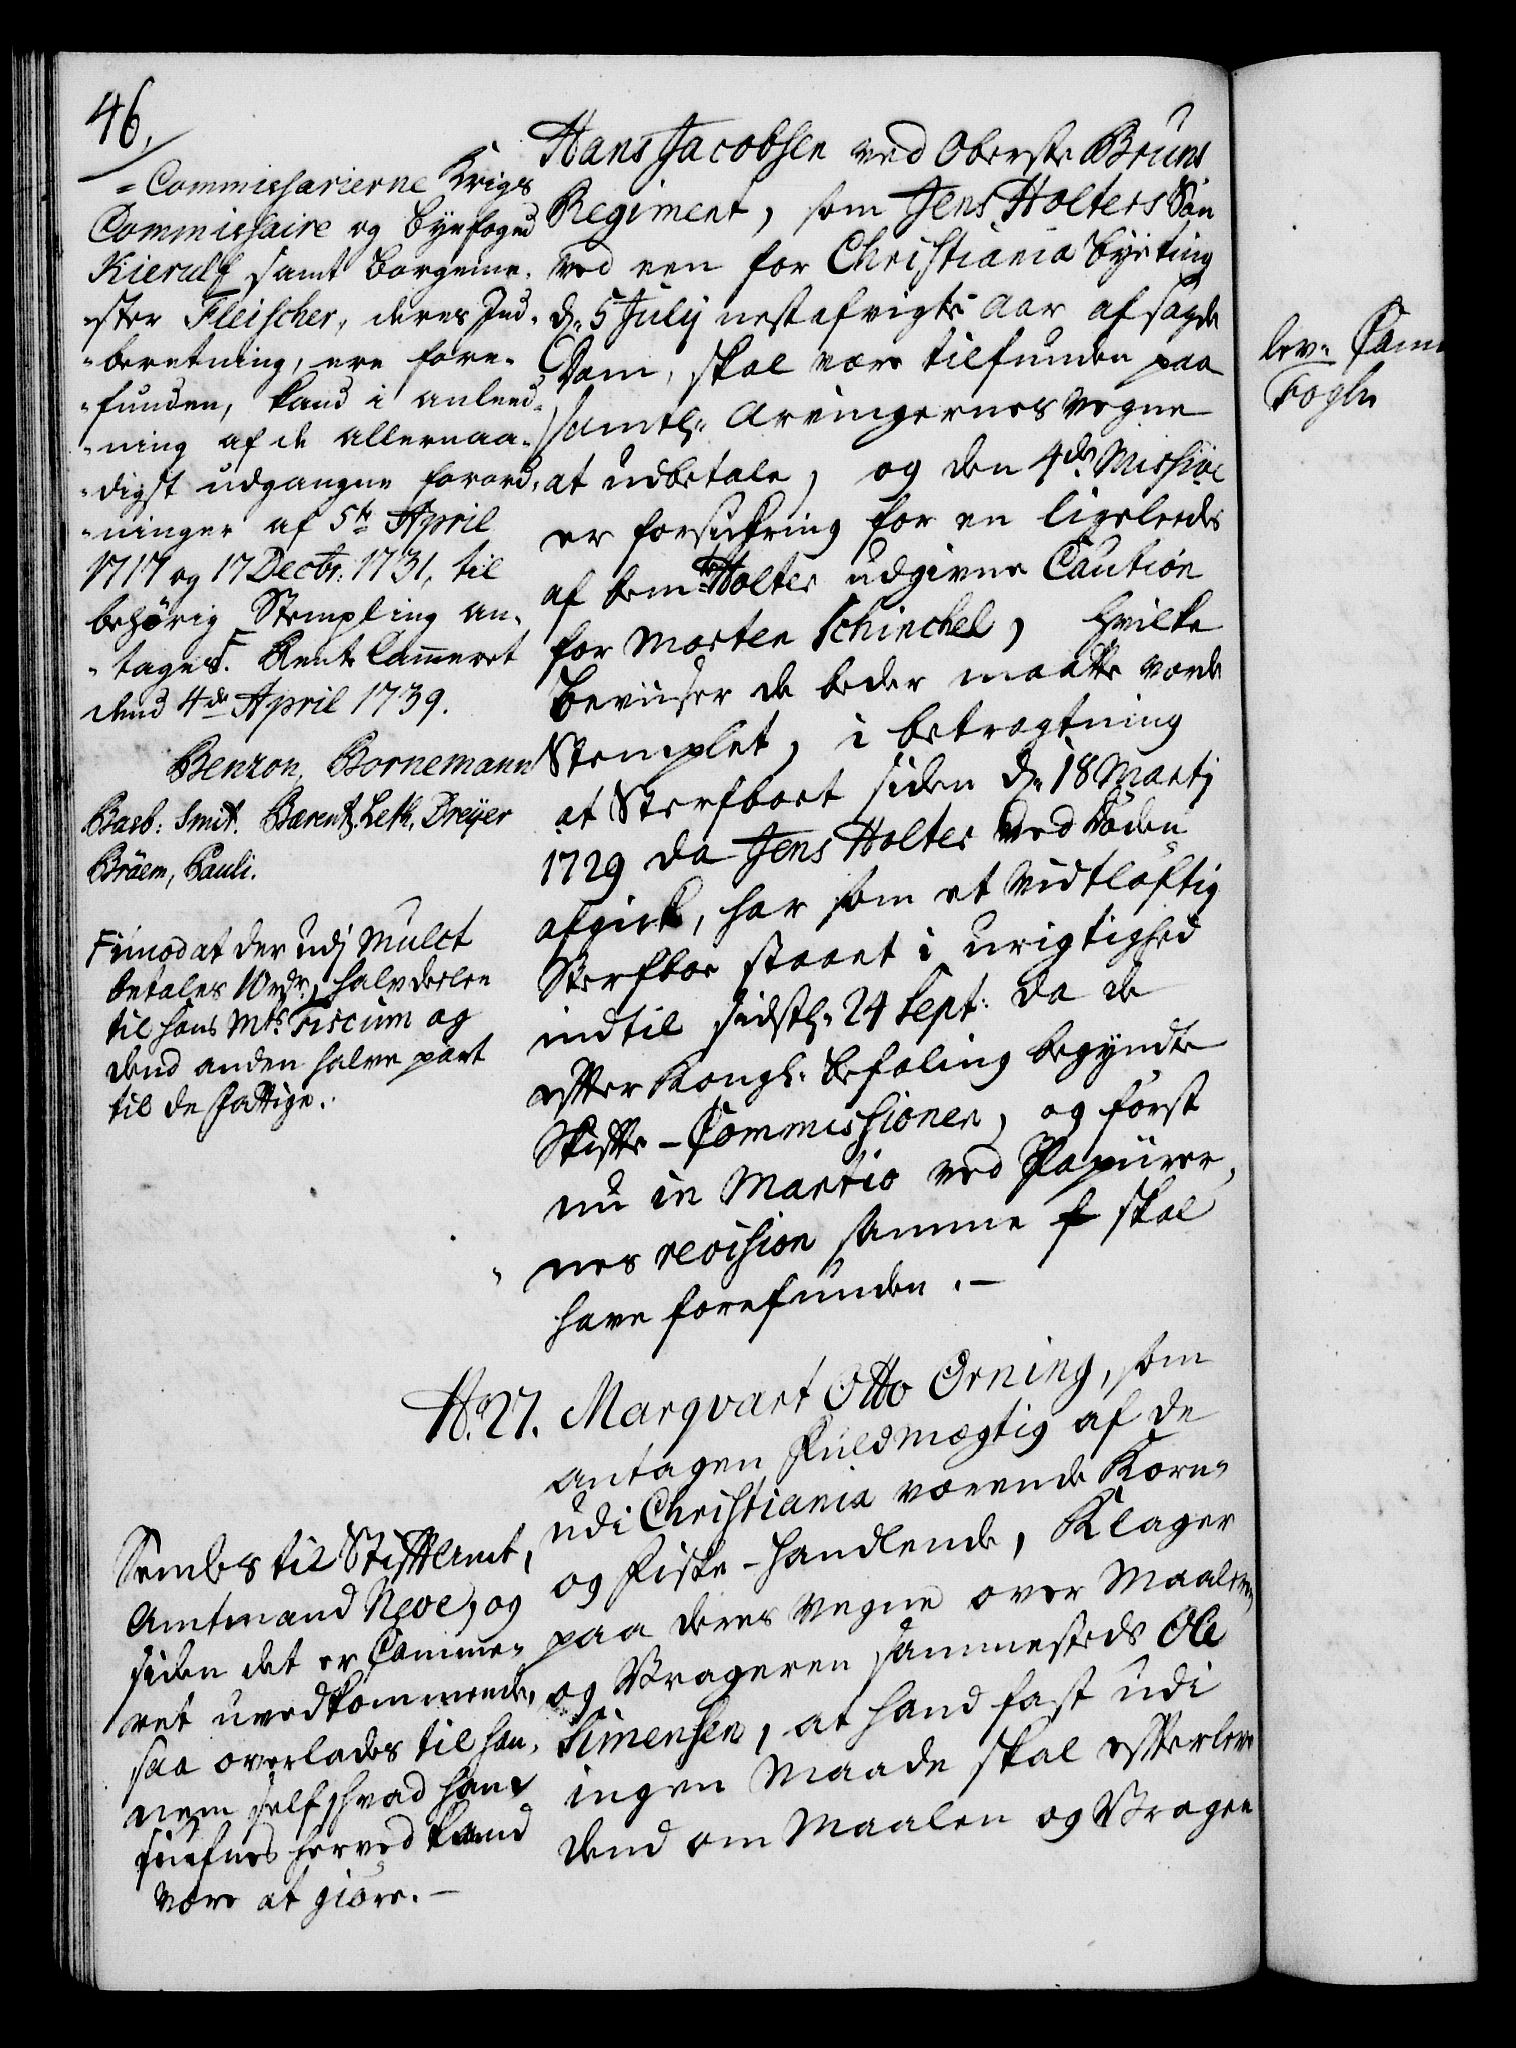 46.
-Commissarierne Krigs
Commissaire og byefoged
Kierulf samt borgeme-
-ster Fleischer, deres Ind-
-beretning, ere fore-
-funden, kand i anleed-
-ning af de allernaa-
-digst udgangne forord-
-ninger af 5te April
1717 og 17 Decbr: 1731, til
behørig Stempling an-
-tages F. Rente Cammeret
dend 4de April 1739.
Benzon, Bornemann
Basb: Smit. Barentz. Leth. Dreyer
Bräem, Pauli.
F imod at der udj Mulct
betales 10 rdr, halvdeelen
til hans Mts Fiscum og
dend anden halve part
til de fattige.
Hans Jacobsen ved Oberste Bruns
Regiment, som Jens Holters Søn
ved een for Christiania byeting
d. 5 July nestafvigte Aar afsagde
Dom, skal være tilfunden paa
samtl. Arvingernes Vegne
at udbetale, og den 4de Missive
er forsickring for en ligeleedes
af bemte Holter udgivne Caution
for Morten Schinchel, hvilke
Beviiser de beder maatte vorde
Stemplet, i betragtning
at Sterfboet siden d. 18 Martj
1729 da Jens Holter ved Døden
afgick, har som et Vidtløftig
Sterfboe staaet i urigtighed
indtil sidstl. 24 Sept: da de
effter Kongl. befaling begyndte
Skiffte-Commissionen, og først
nu in Martio ved Papiirer-
nes revision samme skal
have forefunden.-
No. 27. Marqvart Otto Orning, som
antagen Fuldmægtig af de
udi Christiania værende Korn-
og Fiske-handlende, Klager
paa deres Vegne over Maaleren
og Vrageren sammesteds Ole
Simensen, at hand fast udi
ingen Maade skal effterleve
dend om Maalen og Vragen
Sendes til Stiftbemt,
Amtmand Neve, og
siden det er Camme-
ret uvedkommende,
saa overlades til han-
nem self, hvad hans
fiufnes herved kand
være at giøre.-
lev. Cam
Fogln